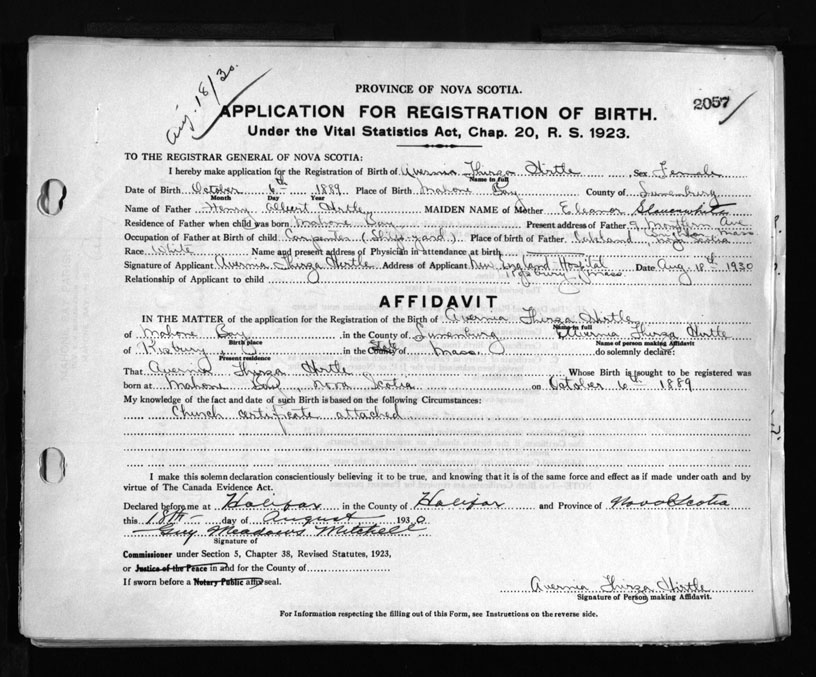 Aug. 18/30.
PROVINCE OF NOVA SCOTIA.
2057
APPLICATION FOR REGISTRATION OF BIRTH.
Under the Vital Statistics Act, Chap. 20, R. S. 1923.
TO THE REGISTRAR GENERAL OF NOVA SCOTIA:
I hereby make application for the Registration of Birth of Avernia Thirza Hirtle Sex Female
Name in full
Date of Birth October 6th 1889 Place of Birth Mahone Bay County of Lunenburg
Month Day Year
Name of Father Henry Albert Hirtle MAIDEN NAME of Mother Eleanor Slauenwhite
Residence of Father when child was born Mahone Bay Present address of Father 9 Ave
Mass
Occupation of Father at Birth of child Carpenter (Ship-yard) Place of birth of Father Oakland Nova Scotia
Race White Name and present address of Physician in attendance at birth
Signature of Applicant Avernia Thirza Hirtle Address of Applicant New England Hospital Date Aug 18th 1930
Roxbury Mass
Relationship of Applicant to child
AFFIDAVIT
IN THE MATTER of the application for the Registration of the Birth of Avernia Thirza Hirtle
Name in full
of Mahone Bay in the County of Lunenburg I Avernia Thirza Hirtle
Birth place Name of person making Affidavit
of Roxbury in the County of State Mass. do solemnly declare:
Present residence
That Avernia Thirza Hirtle Whose Birth is sought to be registered was
born at Mahone Bay, Nova Scotia on October 6th 1889
My knowledge of the fact and date of such Birth is based on the following Circumstances:
Church certificate attached
I make this solemn declaration conscientiously believing it to be true, and knowing that it is of the same force and effect as if made under oath and by
virtue of The Canada Evidence Act.
Declared before me at Halifax in the County of Halifax and Province of Nova Scotia
this 18th day of August 1930
Guy Meadows Mitchell
Signature of
Commissioner under Section 5, Chapter 38, Revised Statutes, 1923,
or Justice of the Peace in and for the County of
If sworn before a Notary Public affix seal.
Avernia Thirza Hirtle
Signature of Person making Affidavit.
For Information respecting the filling out of this Form, see Instructions on the reverse side.